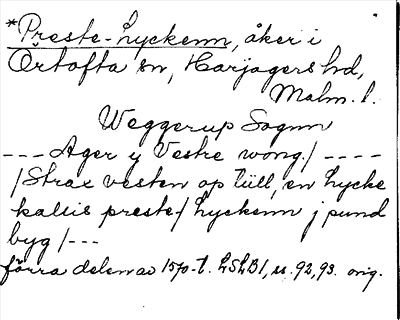 *Preste-Lyckenn, åker i
Örtofta sn, Harjagers hd,
Malm. l.
Weggerup Sognn
--- Ager y Vestre wong./ ----
/Strax vesten op tüll, en Lycke
kallis preste-/Lyckenn j pund
byg /---
förra delen av 1570-t. LSLB1, s. 92, 93. orig.